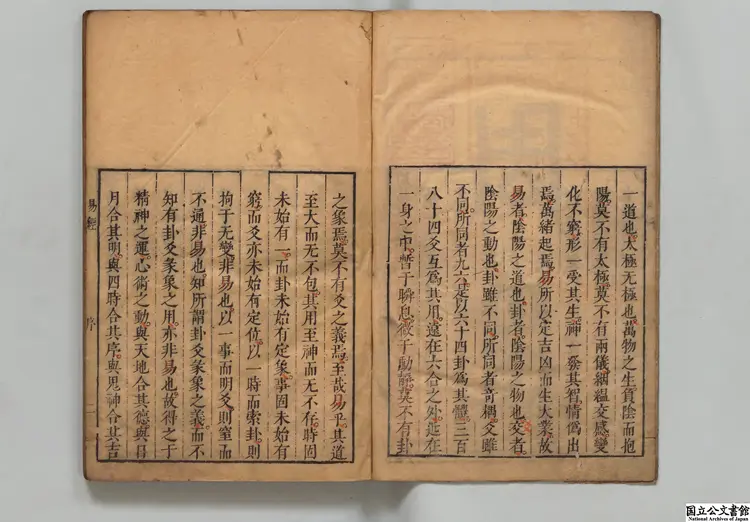 一道也太極无極也萬物之生負陰而抱
陽莫不有太極莫不有兩儀絪縕交感變
化不窮形一受其生神一發其智情僞出
焉萬緒起焉易所以定吉凶而生大業故
易者陰陽之道也卦者陰陽之物也爻者
陰陽之動也卦雖不同所同者奇耦爻雖
不同所同者九六是以六十四卦爲其體三百
八十四爻互爲其用遠在六合之外近在
一身之中暫于瞬息微于動靜莫不有卦
之象焉莫不有爻之義焉至哉易乎其道
至大而无不包其用至神而无不存時固
未始有一而卦未始有定象事固未始有
窮而爻亦未始有定位以一時而索卦則
拘于无變非易也以一事而明爻則窒而
不通非易也知所謂卦爻彖象之義而不
知有卦爻彖象之用亦非易也故得之于
精神之運心術之動與天地合其德與日
月合其明與四時合其序與鬼神合其吉
易經 序
国立公文書館
National Archives of Japan